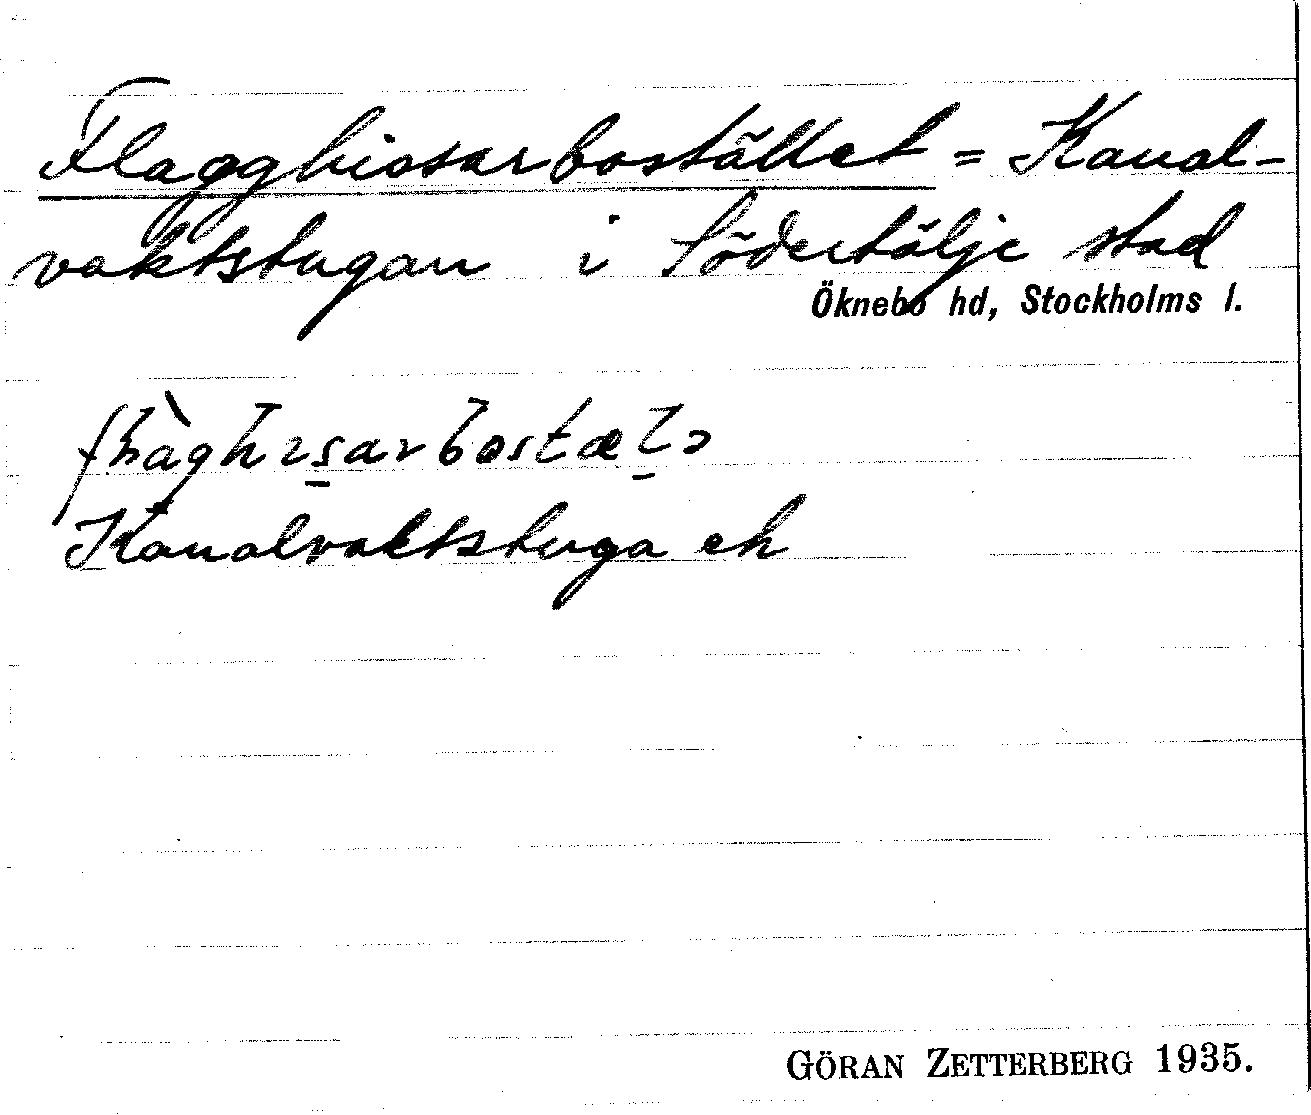 Flagghissarbostället = Kanal-
vaktstugan i Södertälje stad
Öknebo hd, Stockholms l.
Kanalvaktstuga eh
GÖRAN ZETTERBERG 1935.